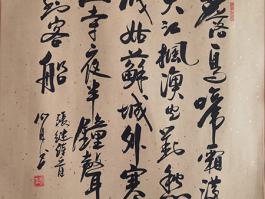 落烏啼霜滿
天江楓漁火對愁
眠姑蘇城外寒
山寺夜半鐘聲
到客船
張繼